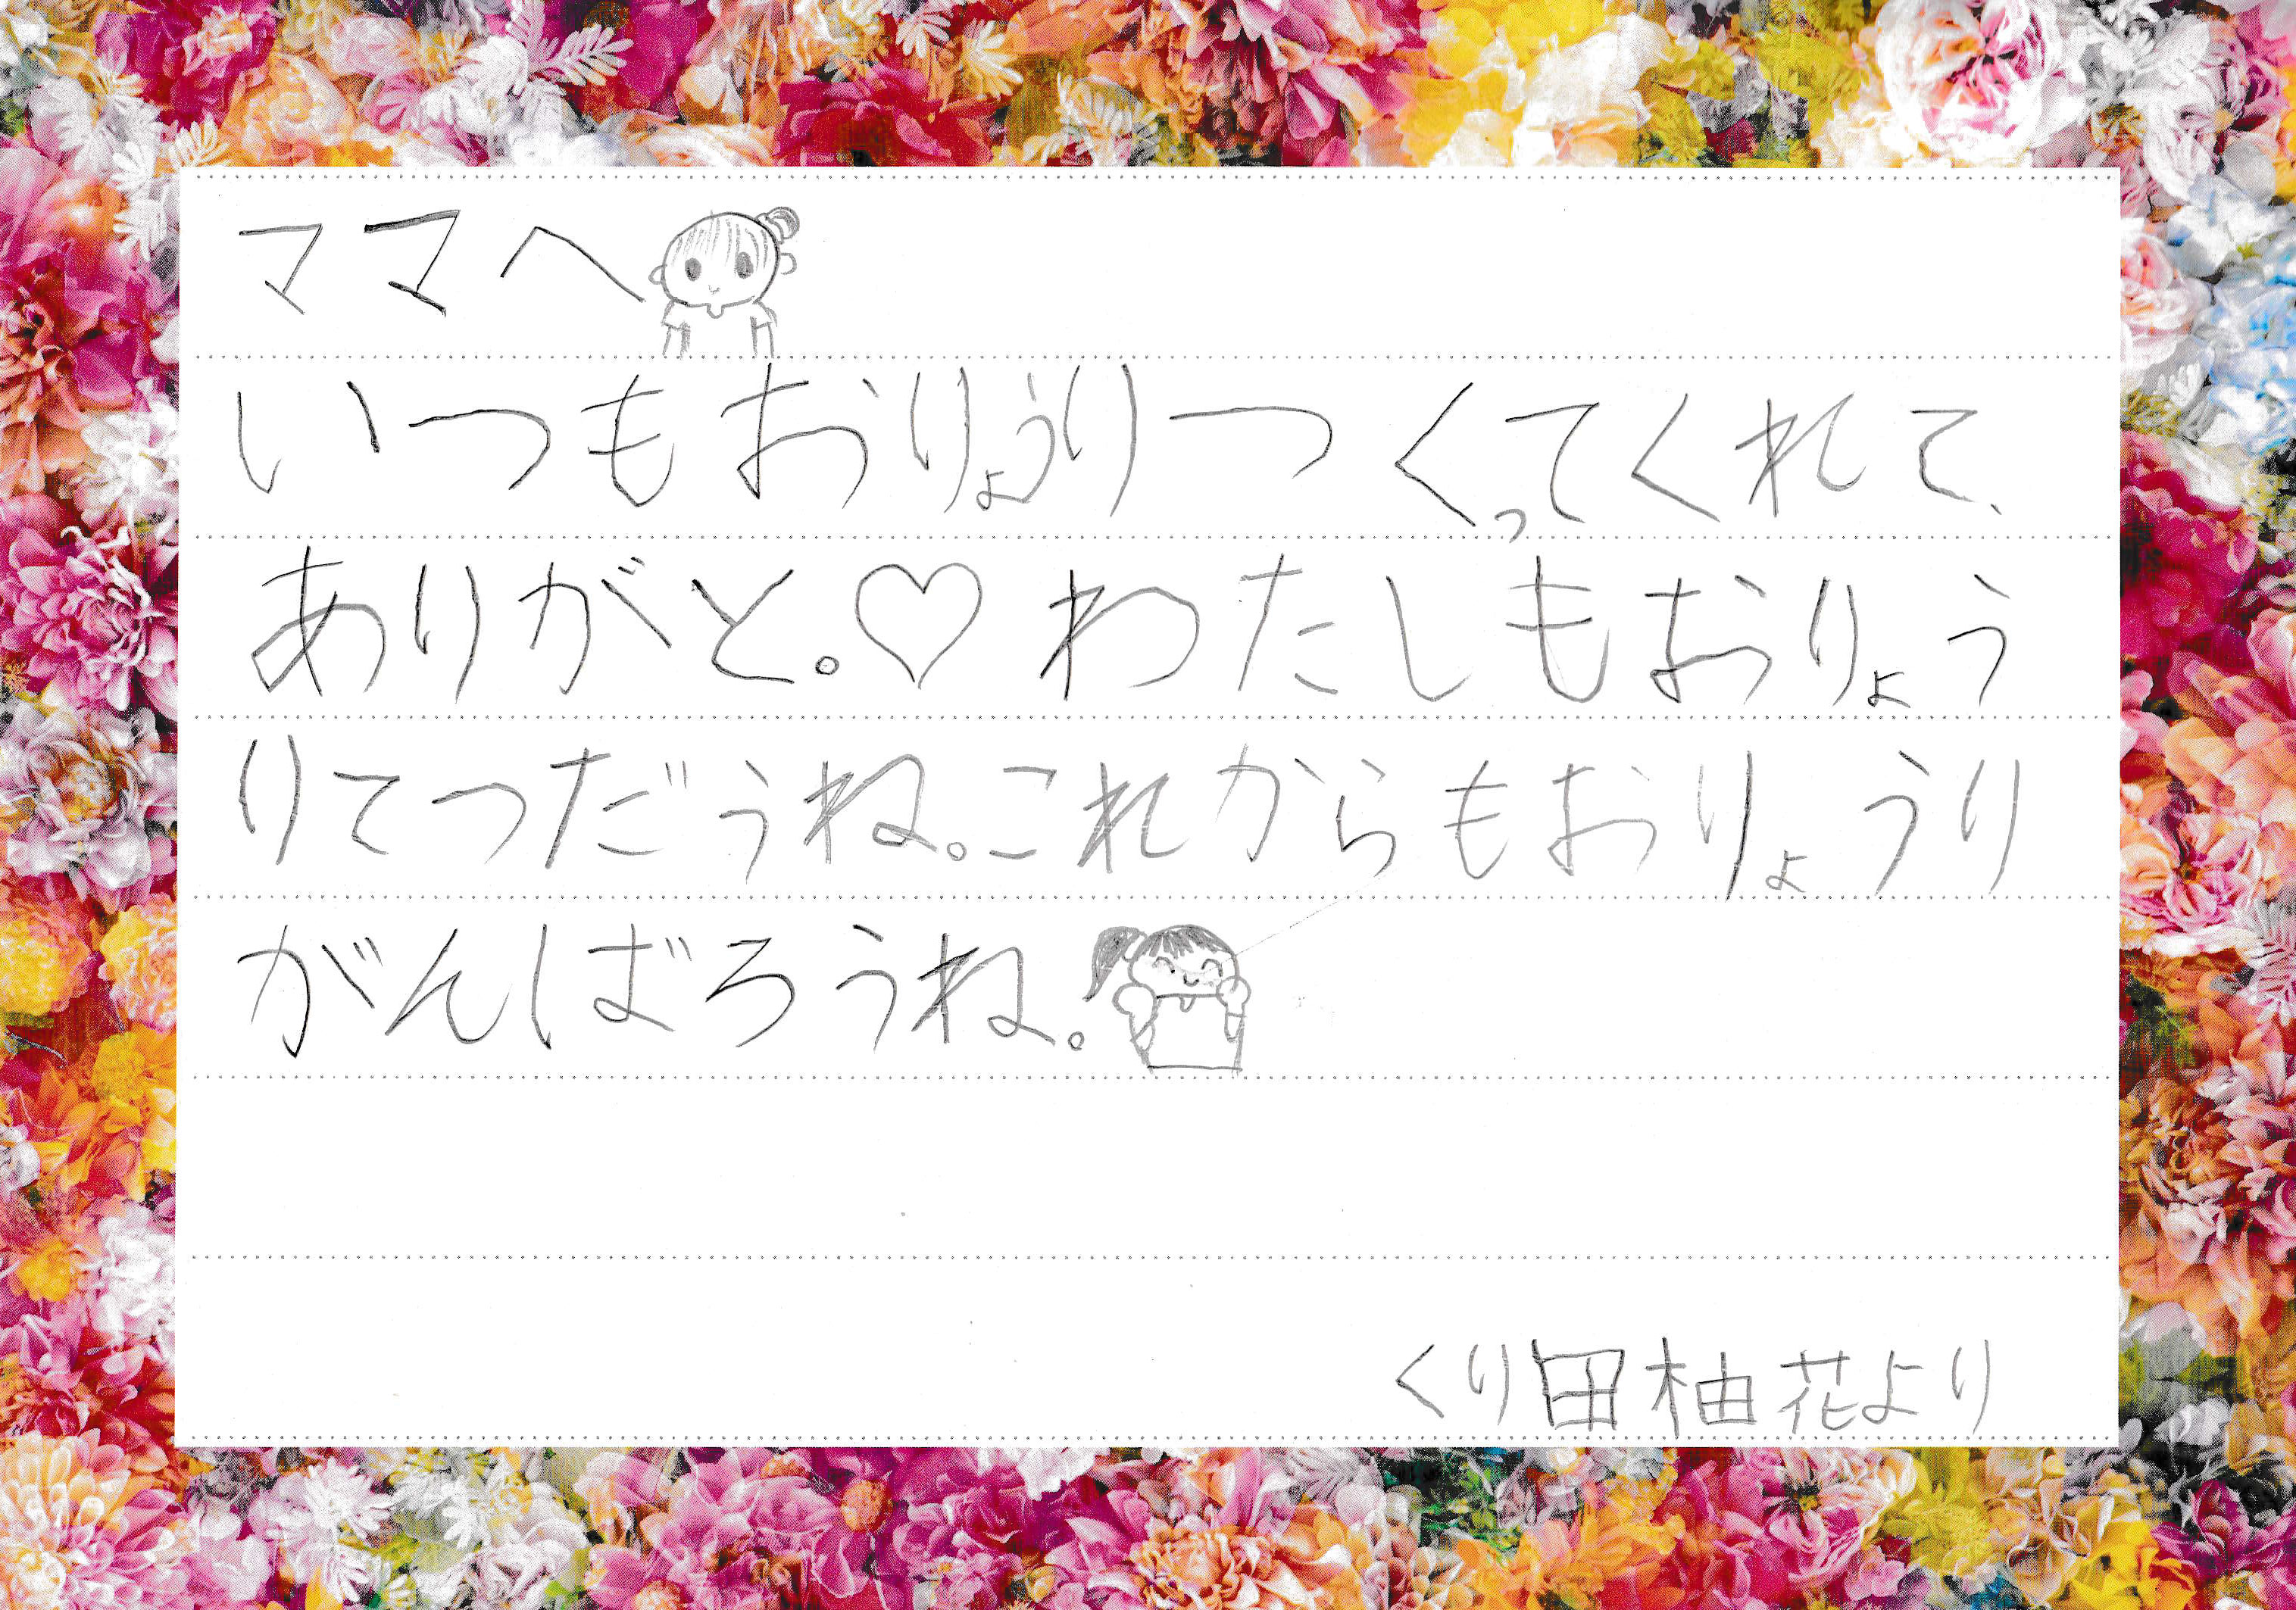 ママへ
いつもおりょうりつくってくれて、
ありがと。♡わたしもおりょう
りてつだうね。これからもおりょうり
がんばろうね。
くり田柚花より